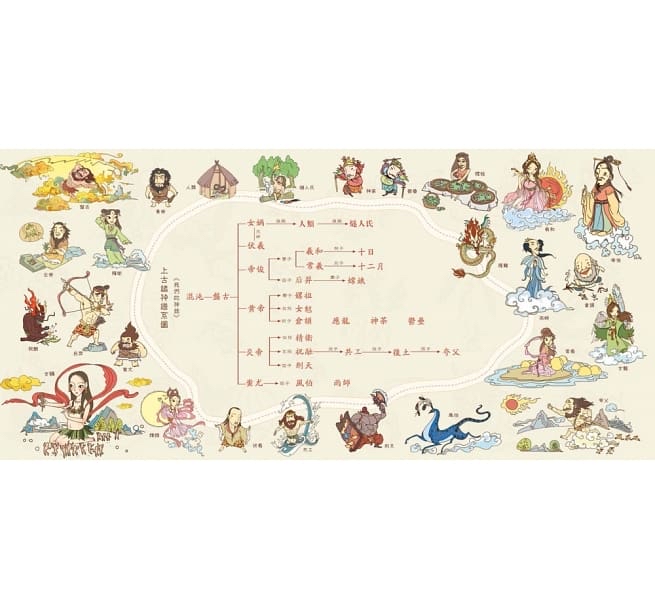 上古諸神譜系圖
《我們的神話》
混沌
盤古
女媧
人類
燧人氏
伏羲
帝俊
羲和
十日
常羲
十二月
后羿
嫦娥
黃帝
嫘祖
女魃
倉頡
應龍
神荼
鬱壘
炎帝
精衛
祝融
共工
后土
夸父
刑天
蚩尤
風伯
雨師
盤古
黃帝
人類
燧人氏
神荼
鬱壘
嫘祖
羲和
帝俊
炎帝
精衛
祝融
后羿
蚩尤
女媧
嫦娥
伏羲
共工
刑天
風伯
夸父
應龍
雨師
倉頡
常羲
女魃